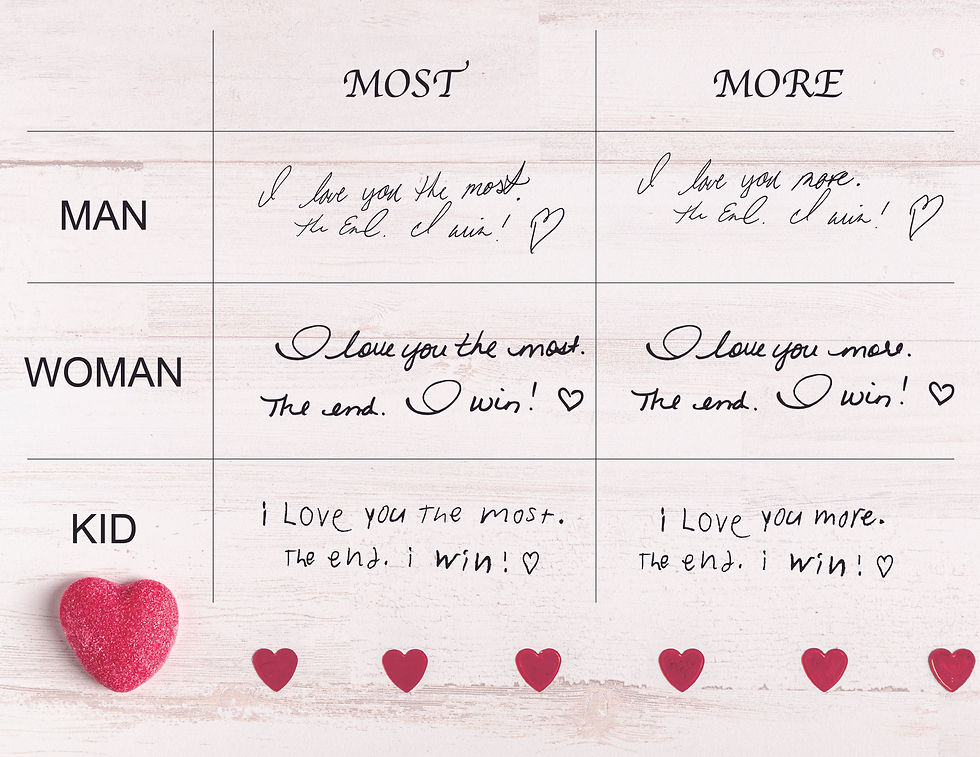 MOST MORE
MAN
I love you the most.
The End. I win!
I love you more.
The End. I win!
WOMAN
I love you the most.
The end. I win!
I love you more.
The end. I win!
KID
i Love you The most.
The end. i win!
i Love you more.
The end. i win!